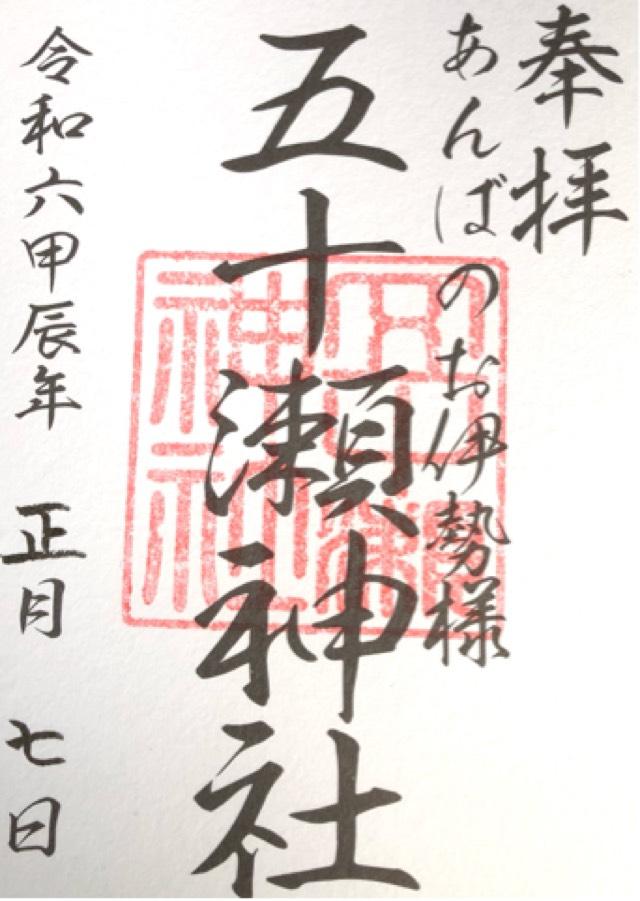 奉拝
あんばのお伊勢様
五十瀬神社
五十瀬神社
令和六甲辰年 正月 七日